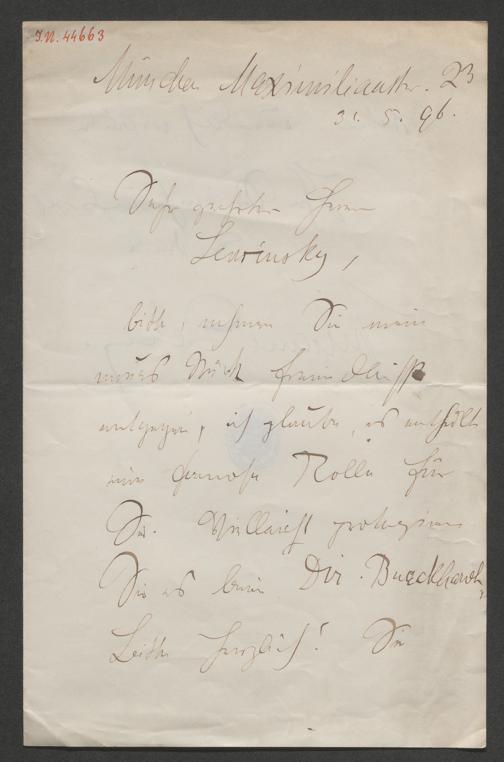 J.N. 44663
München Maximilianstr. 23
31. 5. 96.
Sehr geehrter Herr
Lewinsky,
bitte, nehmen Sie mein
neues Stück freundlichst
entgegen, ich glaube, es enthält
eine famose Rolle für
Sie. Vielleicht protegieren
Sie es beim Dir. Burckhardt,
Bitte herzlich! Die